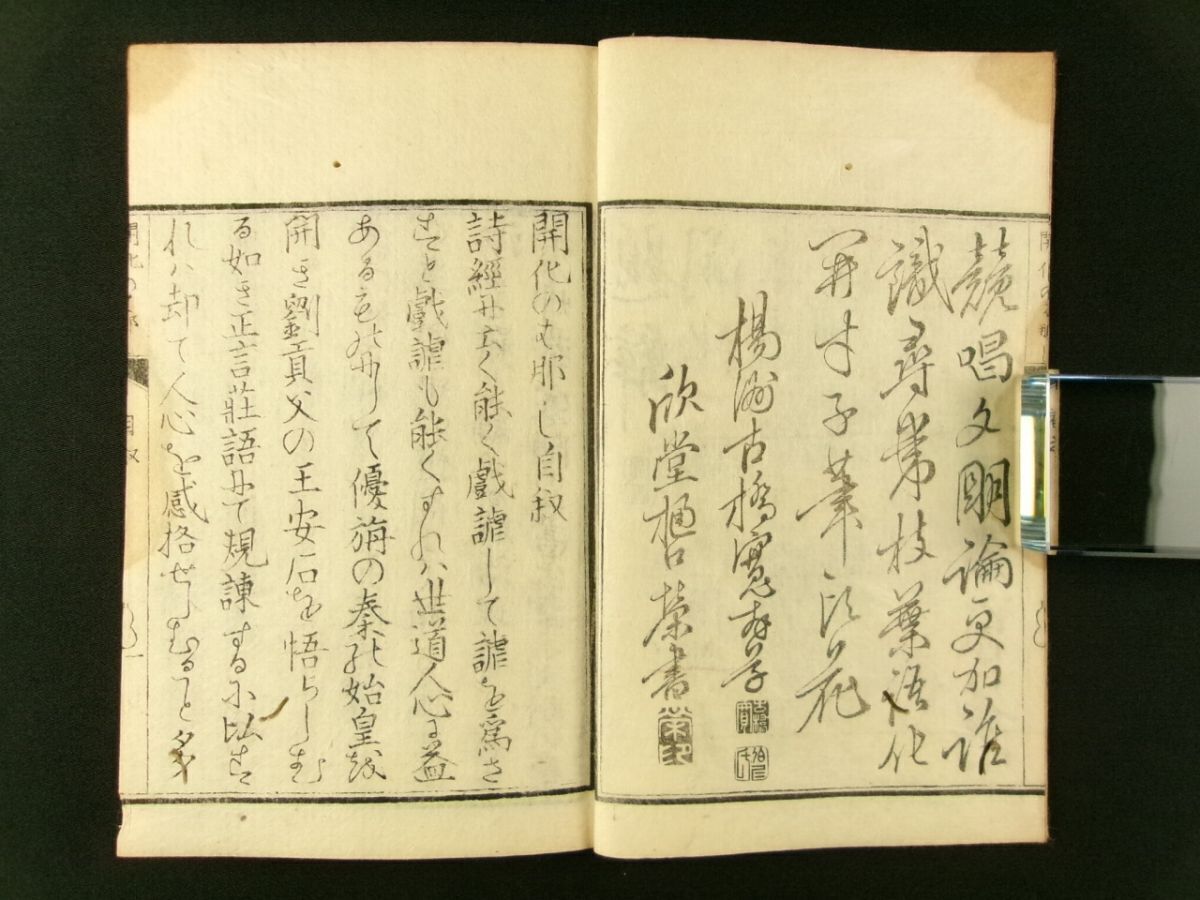 競唱文明論更加誰
識尋常枝葉語化
開才子筆頭花
楊洲古橋寛
欣堂樋口榮書
開化のは那し自叙
詩經に云く能く戲謔して謔を爲さ
ずと戲謔も能くすれハ世道人心に益
あるものにして優旃の秦の始皇を
開き劉貢父の王安石を悟らしむ
る如き正言莊語にて規諫するに比す
れハ却て人心を感格せしむること多